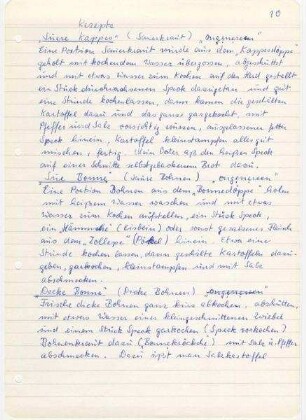 90
Rezepte
„Suere Kappes" (Sauerkraut) „angeneren"
Eine Portion Sauerkraut wurde aus dem „Kappesdöppe"
geholt mit kochendem Wasser übergossen, abgeschüttet
und mit etwas Wasser zum Kochen auf den Herd gestellt
ein Stück durchwachsenen Speck dazugetan und gut
eine Stunde kochenlassen, dann kamen die geschälten
Kartoffel dazu und das ganze gargekocht, mit
Pfeffer und Salz vorsichtig würzen, ausgelassenen fetten
Speck hinein, Kartoffel kleinstampfen alles gut
mischen, fertig. Mein Vater aß den heißen Speck
auf einer Schnitte selbstgebackenem Brot dazu.
„Sure Bonne" (Saure Bohnen)
Eine Portion Bohnen aus dem „Bonnedöppe" holen
mit heißem Wasser waschen und mit etwas
Wasser zum Kochen aufstellen, ein Stück Speck,
ein Hämmche (Eisbein) oder sonst gesalzenes Fleisch
aus dem „Zolleper" (Pökel) hinein. Etwa eine
Stunde kochen lassen, dann geschälte Kartoffeln dazu-
geben, garkochen, kleinstampfen und mit Salz
abschmecken.
„Decke Bonne" (Dicke Bohnen)
Frische dicke Bohnen ganz kurz abkochen, abschütten
mit etwas Wasser einer kleingeschnittenen Zwiebel
und einem Stück Speck garkochen (Speck vorkochen)
Bohnenkraut dazu („Bonnekröckche") mit Salz u. Pfeffer
abschmecken. Dazu ißt man Salzkartoffel